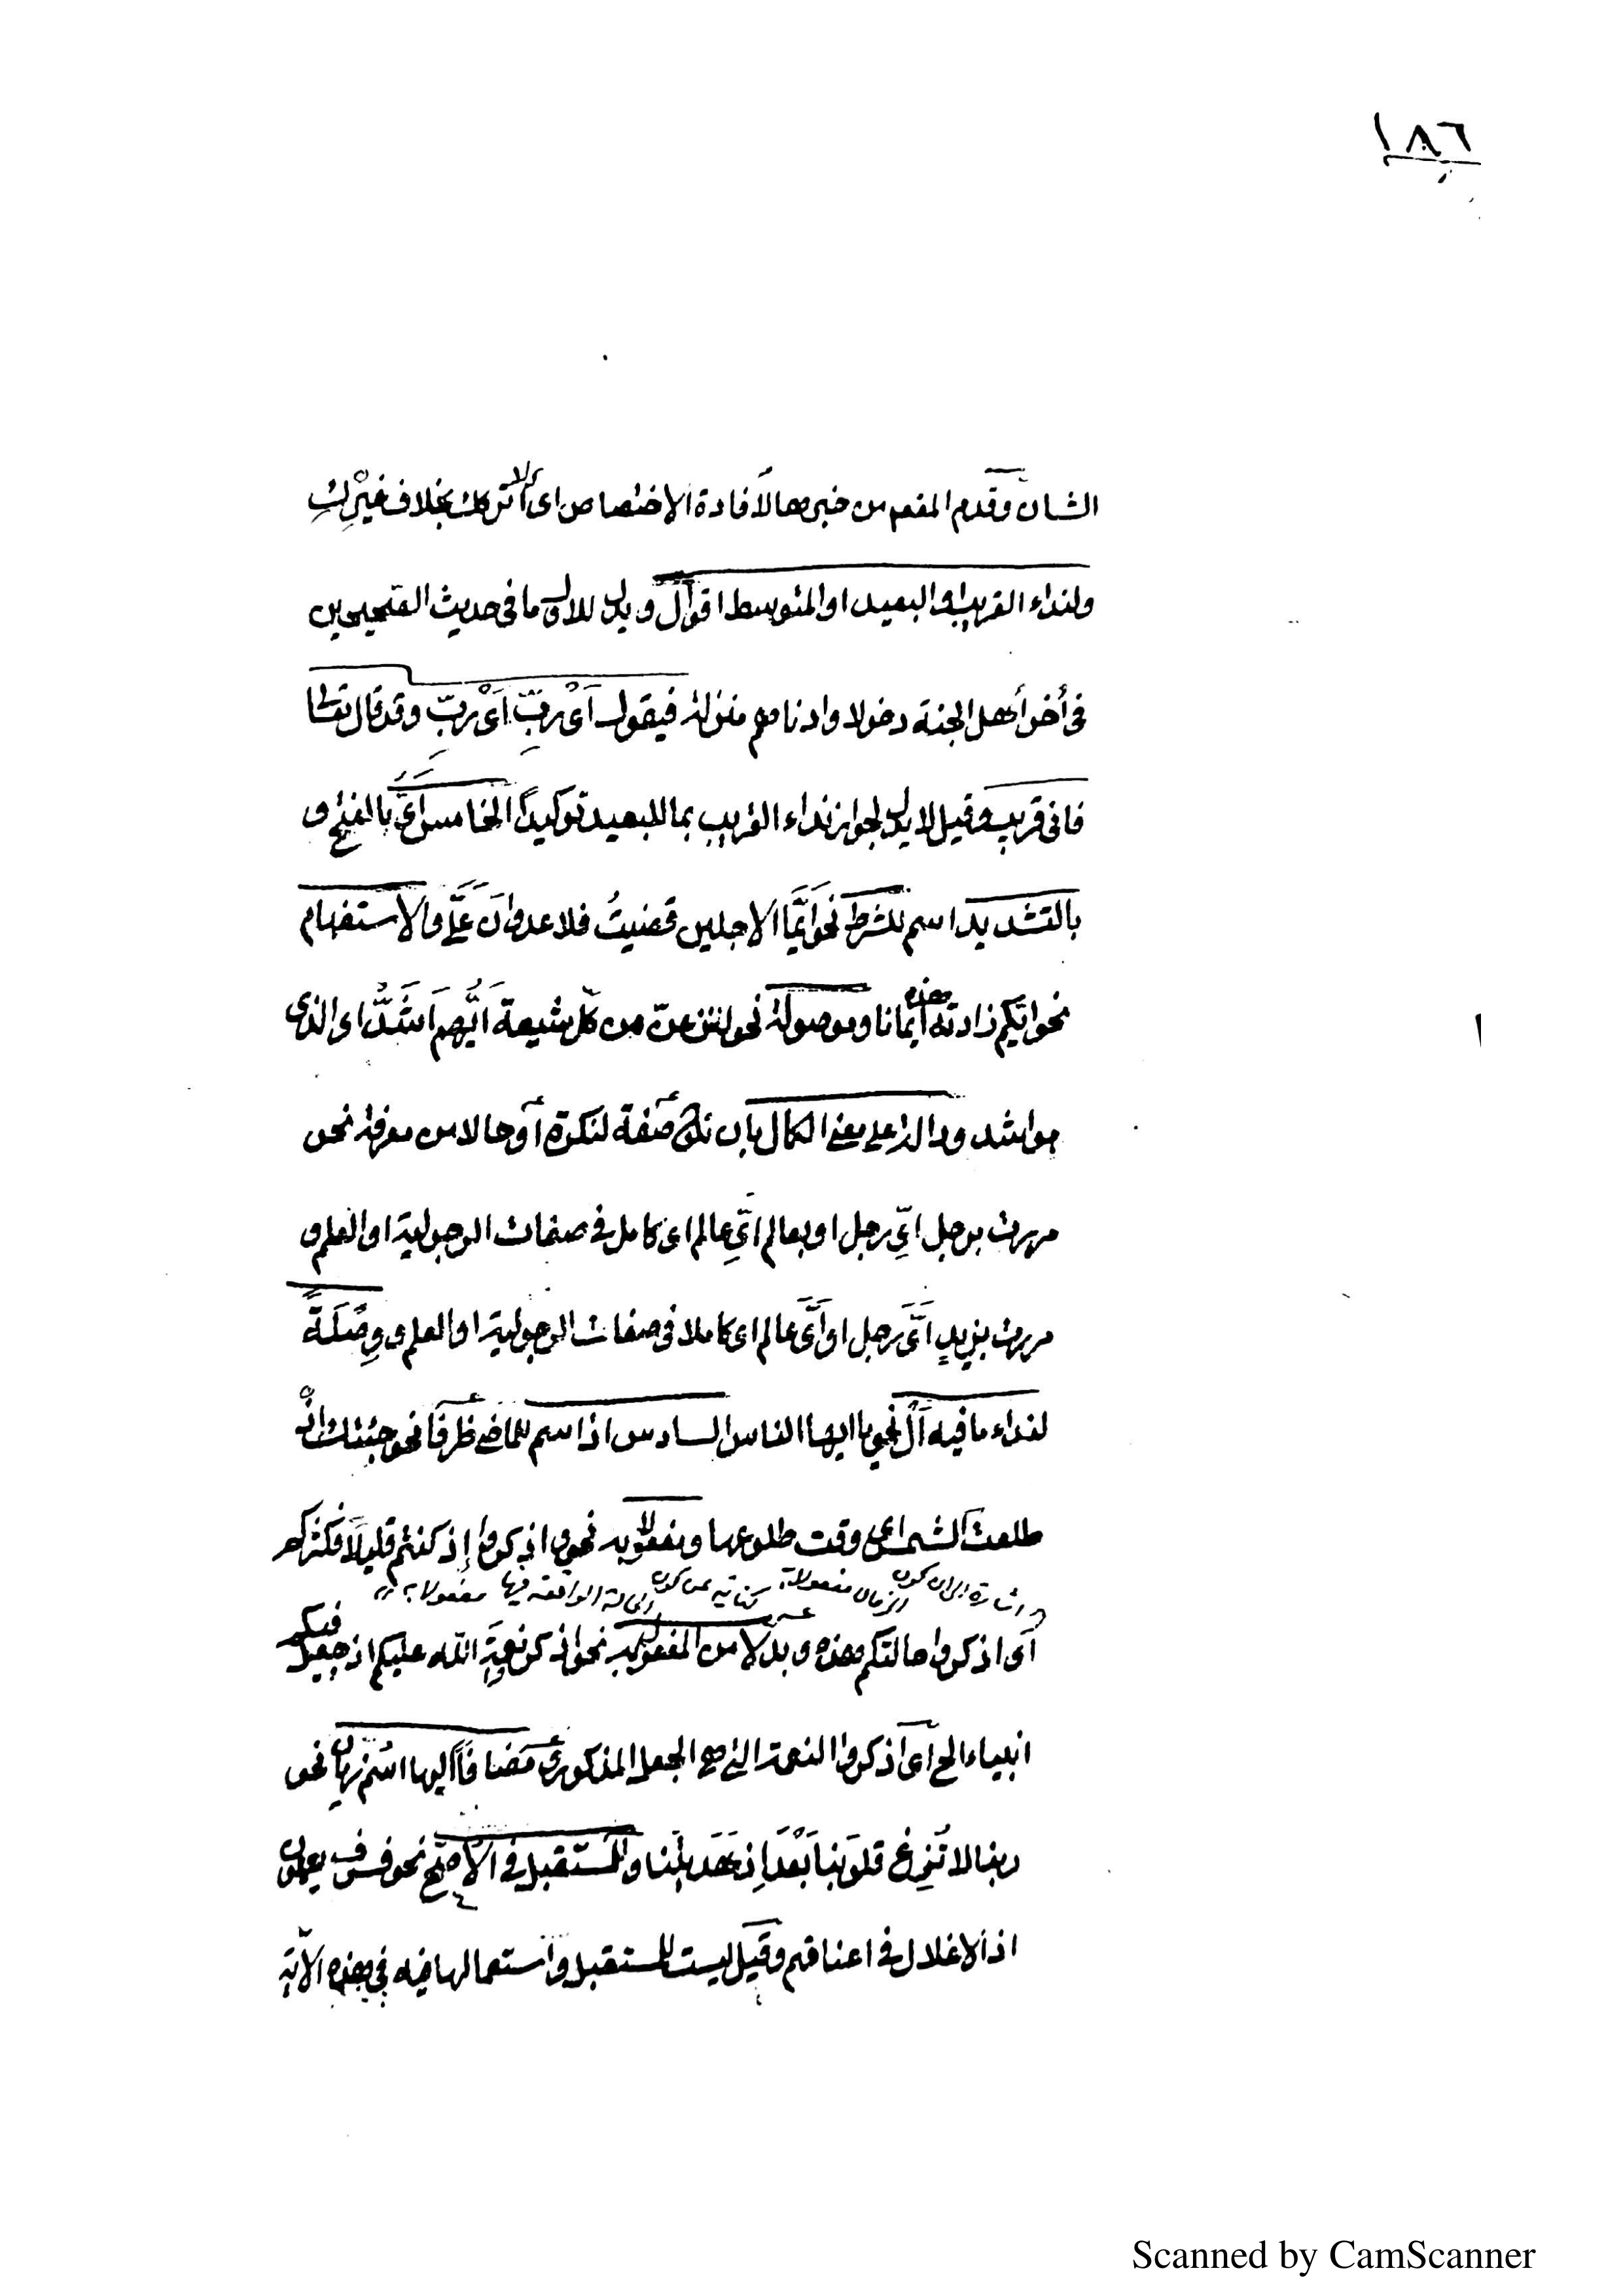 ١٨٦
الشان وقدم المفعول من خبرها لافادة الاختصاص اى لا اتركك بخلاف غيركِ
ولنداء القريب او البعيد او المتوسط اقوال ويدل للاول ما فى حديث الصحيحين
فى أخر أهل الجنة دخولا وادناهم منزلة فيقول أىْ ربِّ أىْ ربِّ وقد قال تعالى
فانى قريب وقيل لا يدل لجواز نداء القريب بما للبعيد توكيدًا الخامس اىّ بالفتح و
بالتشديد اسم للشرط نحو أيَّما الاجلين قضيتُ فلا عدوانَ علىَّ والاستفهام
نحو ايّكم زادته هذه ايمانا وموصولة نحو لننزعنّ من كلّ شيعة أيُّهم أشَدُّ اى الذى
هو اشد ودالة على معنى الكمال بان تكون صفة لنكرة أو حالا من معرفة نحو
مررت برجل اىِّ رجل او بعالم اىِّ عالم اى كامل فى صفات الرجولية او العلم و
مررت بزيدٍ اىَّ رجل او أىَّ عالم اى كاملا فى صفات الرجولية او العلم و وصلةً
لنداء ما فيه ألْ نحو يا ايها الناس السادس اذ اسم للماضى ظرفًا نحو جئتك اذْ
طلعت الشمس اى وقت طلوعها ومفعولا به نحو واذكروا إذ كنتم قليلًا فكثركم
اشارة الى ان كون الزمان مفعولا به كناية عن كون الحالة الواقعة فيها مفعولا به
أى اذكروا حالتكم هذه وبدلا من المفعول به نحو اذكروا نعمة الله عليكم اذ جعل فيكم
انبياء الخ أى اذكروا النعمة التى هى الجعل المذكور ومضافًا اليها اسْم زمان نحو
ربنا لا تُزغ قلوبَنا بَعْدَ إذ هَدَيتَنا وللمستقبل فى الأصحّ نحو فسوف يعلمون
اذ الاغلال فى اعناقهم وقيل ليست للمستقبل واستعمالها فيه فى هذه الآية
Scanned by CamScanner